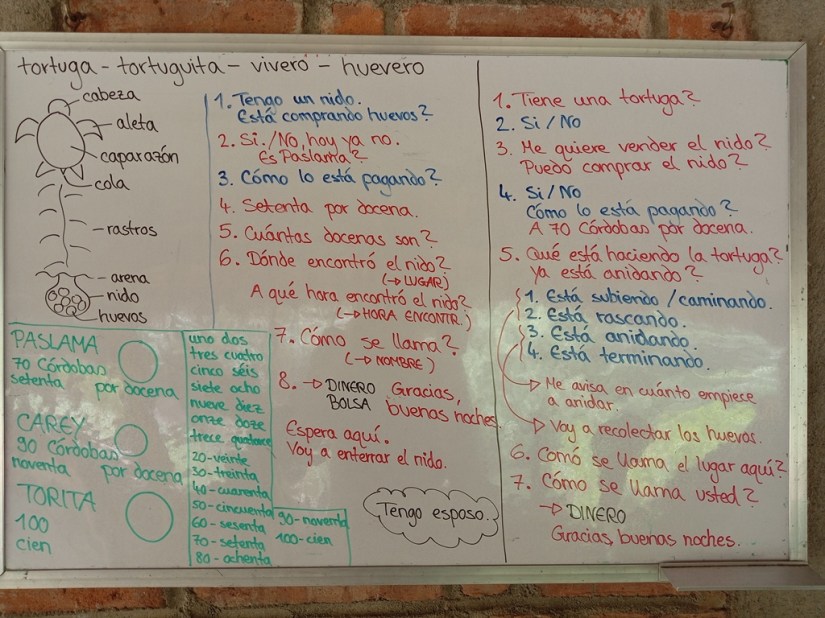 tortuga - tortuguita - vivero - huevero
cabeza
aleta
caparazón
cola
rastros
arena
nido
huevos
PASLAMA
70 Córdobas
setenta por docena
CAREY
90 Córdobas
noventa por docena
TORITA
100
cien
uno dos
tres cuatro
cinco séis
siete ocho
nueve diez
onze doze
trece quatorce
20-veinte
30-treinta
40-cuarenta
50-cincuenta
60-sesenta
70-setenta
80-ochenta
90-noventa
100-cien
1. Tengo un nido.
Está comprando huevos?
2. Si./No, hoy ya no.
Es Paslama?
3. Cómo lo está pagando?
4. Setenta por docena.
5. Cuántas docenas son?
6. Dónde encontró el nido?
(→ LUGAR)
A qué hora encontró el nido?
(→ HORA ENCONTR.)
7. Cómo se llama?
(→ NOMBRE)
8. → DINERO Gracias,
BOLSA buenas noches.
Espera aquí.
Voy a enterrar el nido.
Tengo esposo.
1. Tiene una tortuga?
2. Si / No
3. Me quiere vender el nido?
Puedo comprar el nido?
4. Si/No
Cómo lo está pagando?
A 70 Córdobas por docena.
5. Qué está haciendo la tortuga?
Ya está anidando?
1. Está subiendo /caminando.
2. Está rascando.
3. Está anidando.
4. Está terminando.
Me avisa en cuánto empiece
a anidar.
Voy a recolectar los huevos.
6. Comó se llama el lugar aquí?
7. Cómo se llama usted?
→ DINERO
Gracias, buenas noches.